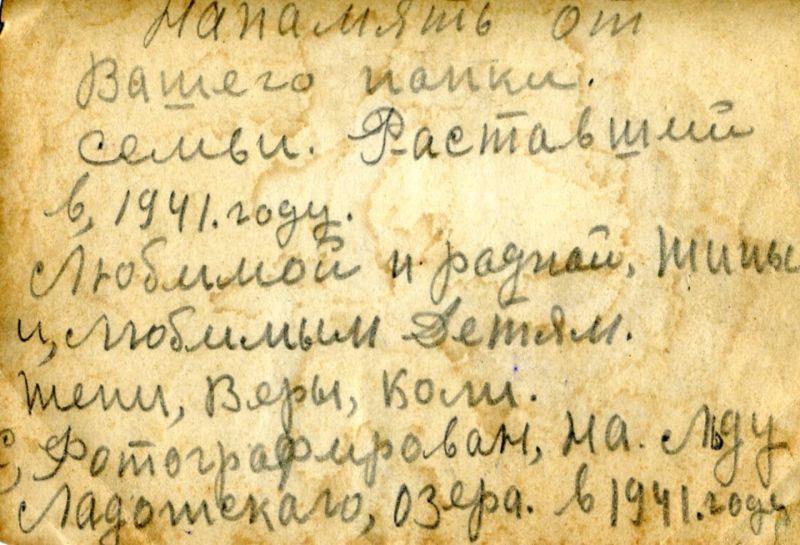 Напамять от
Вашего папки.
семьи. Раставший
в, 1941. году.
Любимой и радной, Жины
и, Любимым Детям.
Жени, Веры, Коли.
С, Фотографирован, на. Льду
Ладожскаго, озера. в 1941. году